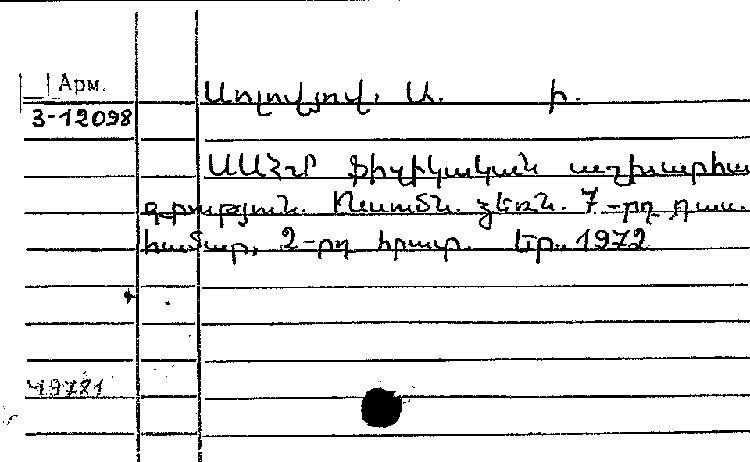 Арм.
Սոլովյով, Ա. Ի.
3-12098
ՍՍՀՄ ֆիզիկական աշխարհա
գրություն. Ուսումն. ձեռն. 7-րդ դաս.
համար, 2-րդ հրատ. Եր., 1972
49781